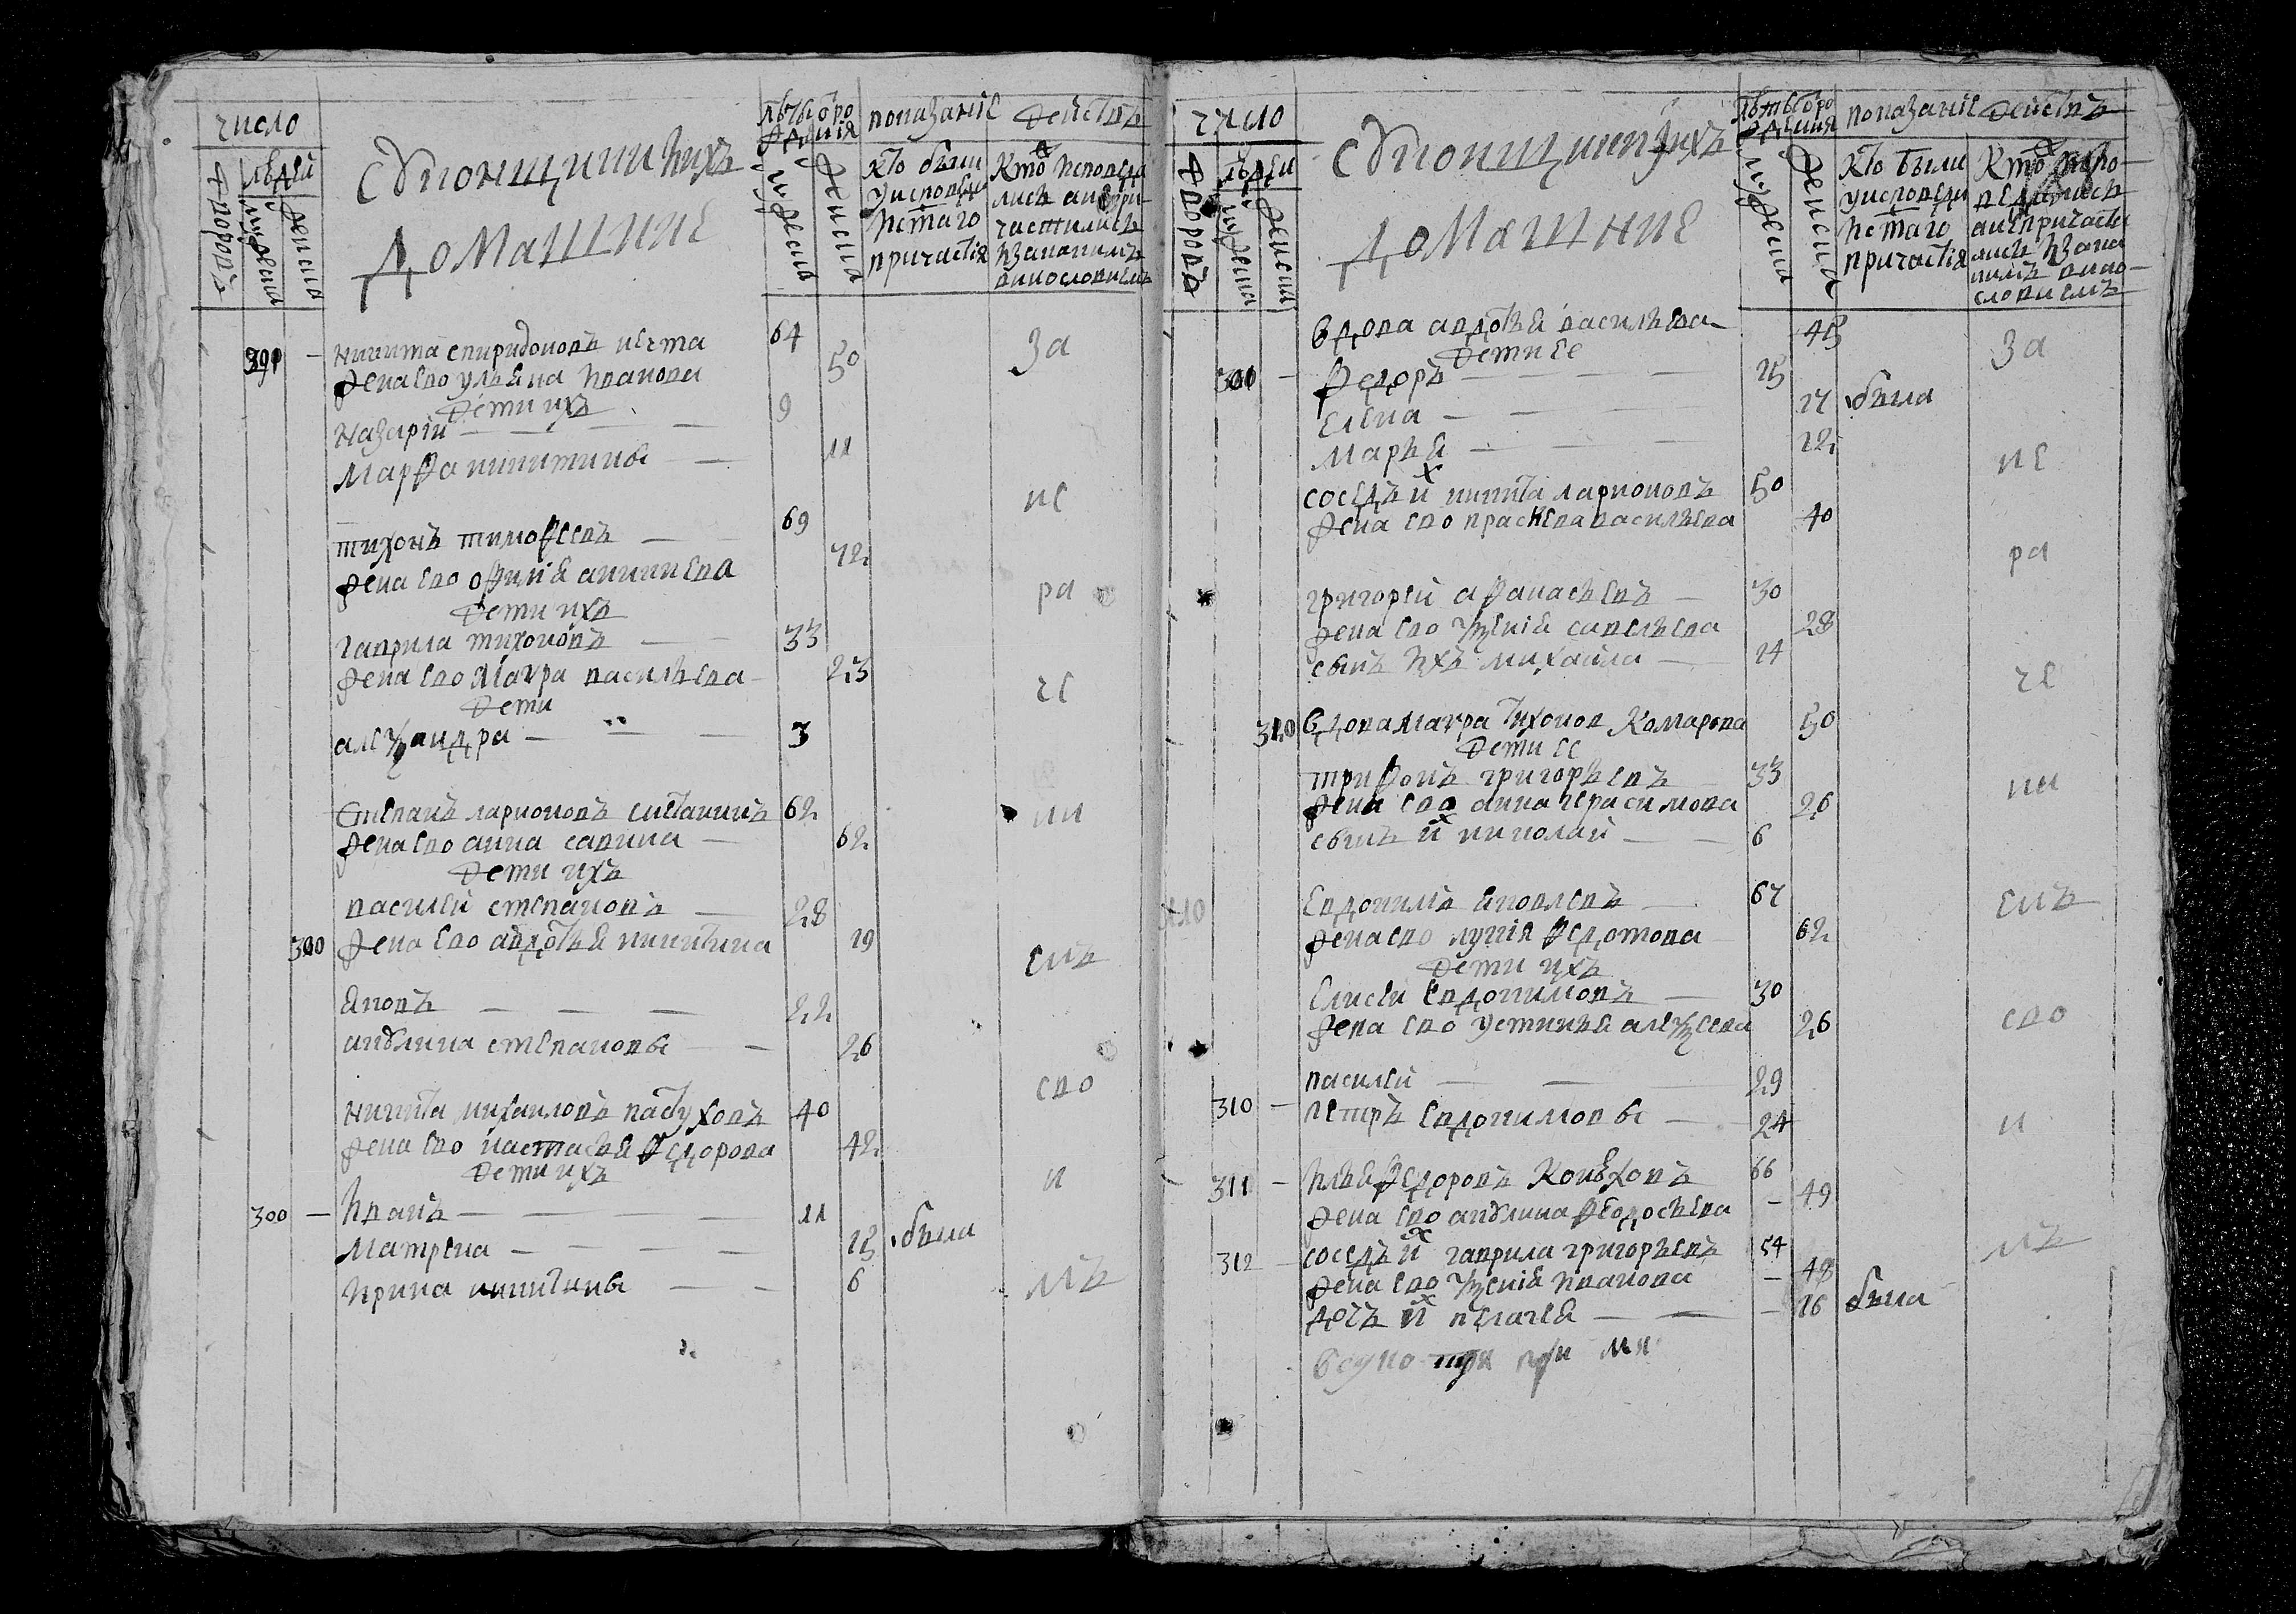 число
людей
дворовъ
мужеска
женска
обыонщики ихъ
домашние
лѣтъ от ро
ждения
мужеска
женска
показание действъ
кто были
у исповеди
и стаго
причастия
кто исповеда
лись а не при
частились
и за каким
винословием
391 – никита спиридоновъ
64
жена ево ульяна иванова
50
дети ихъ
назарий – – –
9
марфа никитины – –
11
тихонъ тимофеевъ –
69
жена ево офимия
72
дети ихъ
гаврила тихоновъ –
33
жена ево мавра васильева
23
дети
александра – – –
3
степанъ ларионовъ
62
жена ево анна савина –
62
дети ихъ
василей степановъ –
28
300 жена ево авдотья никитина
19
яковъ – – –
22
акулина степановы – –
26
никита михаиловъ пастуховъ
40
жена ево настасья федорова
42
дети ихъ
300 – иванъ – – – –
11
матрена – – – –
15 была
ирина никитины – –
6
за
не
ра
че
ни
емъ
ево
и
мъ
число
людей
дворовъ
мужеска
женска
домашние
лѣтъ от ро
ждения
мужеска
женска
показание действъ
кто были
у исповеди
и стаго
причастия
кто испо–
ведались
а не причасти
лись и за ка
ким вино–
словием
вдова авдотья васильева
45
дети ее
федоръ – – – –
15
елена – – –
17 была
марья – – –
12
соседъ их никита ларионовъ
50
жена ево прасковья васильева
40
григорей афанасьевъ –
30
жена ево ксения савельева
28
сынъ ихъ михаила –
14
310 вдова мавра тихонов комарова
50
дети ее
трифонъ григорьевъ
33
жена ево анна герасимова
26
сынъ их николай – –
6
евдокимъ яковлевъ –
67
жена ево лукия федотова
62
дети ихъ
елисей евдокимовъ –
30
жена ево устинья алексеева
26
василей – –
29
310 – петръ евдокимовы –
24
311 – илья федоровъ конюховъ
66
жена ево акулина феодосьева
– 49
312 соседъ их гаврила григорьевъ
54
жена ево ксения иванова
– 48
дочь их пелагея – –
– 16 была
за
не
ра
че
ни
емъ
ево
и
мъ